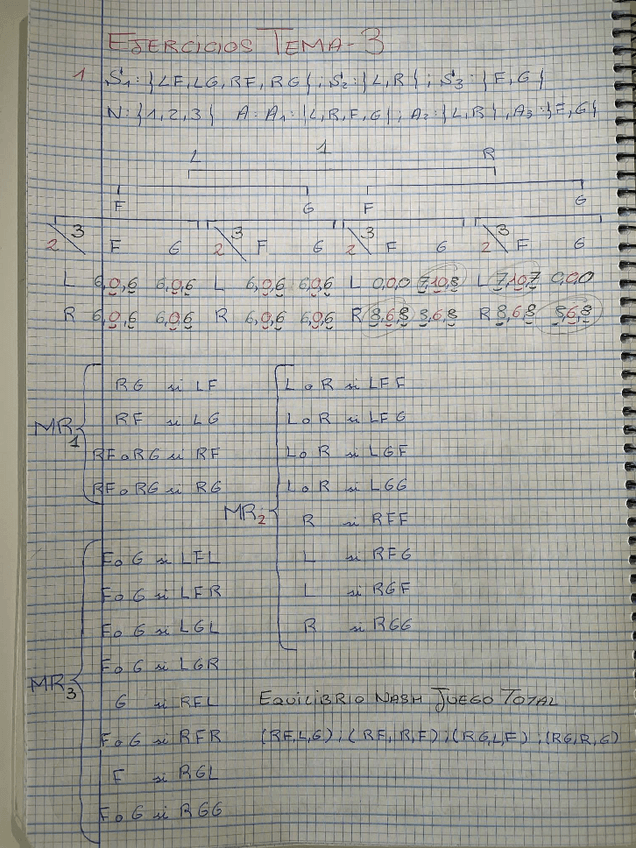 EJERCICIOS TEMA-3
1 S1:{LF,LG,RF,RG}, S2:{L,R}; S3:{F,G}
N:{1,2,3} A: A1:{L,R,F,G}; A2:{L,R}, A3:{F,G}
L 1 R
F G F G
2 3 F G 2 3 F G 2 3 F G 2 3 F G
L 6,0,6 6,0,6 L 6,0,6 6,0,6 L 0,0,0 7,10,8 L 7,10,7 0,0,0
R 6,0,6 6,0,6 R 6,0,6 6,0,6 R 8,6,8 8,6,8 R 8,6,8 8,6,8
MR1
RG si LF
RF si LG
RF o RG si RF
RF o RG si RG
MR2
L o R si LFF
L o R si LFG
L o R si LGF
L o R si LGG
R si RFF
L si RFG
L si RGF
R si RGG
MR3
F o G si LFL
F o G si LFR
F o G si LGL
F o G si LGR
G si RFL
F o G si RFR
F si RGL
F o G si RGG
EQUILIBRIO NASH JUEGO TOTAL
(RF,L,G); (RF,R,F); (RG,L,F); (RG,R,G)